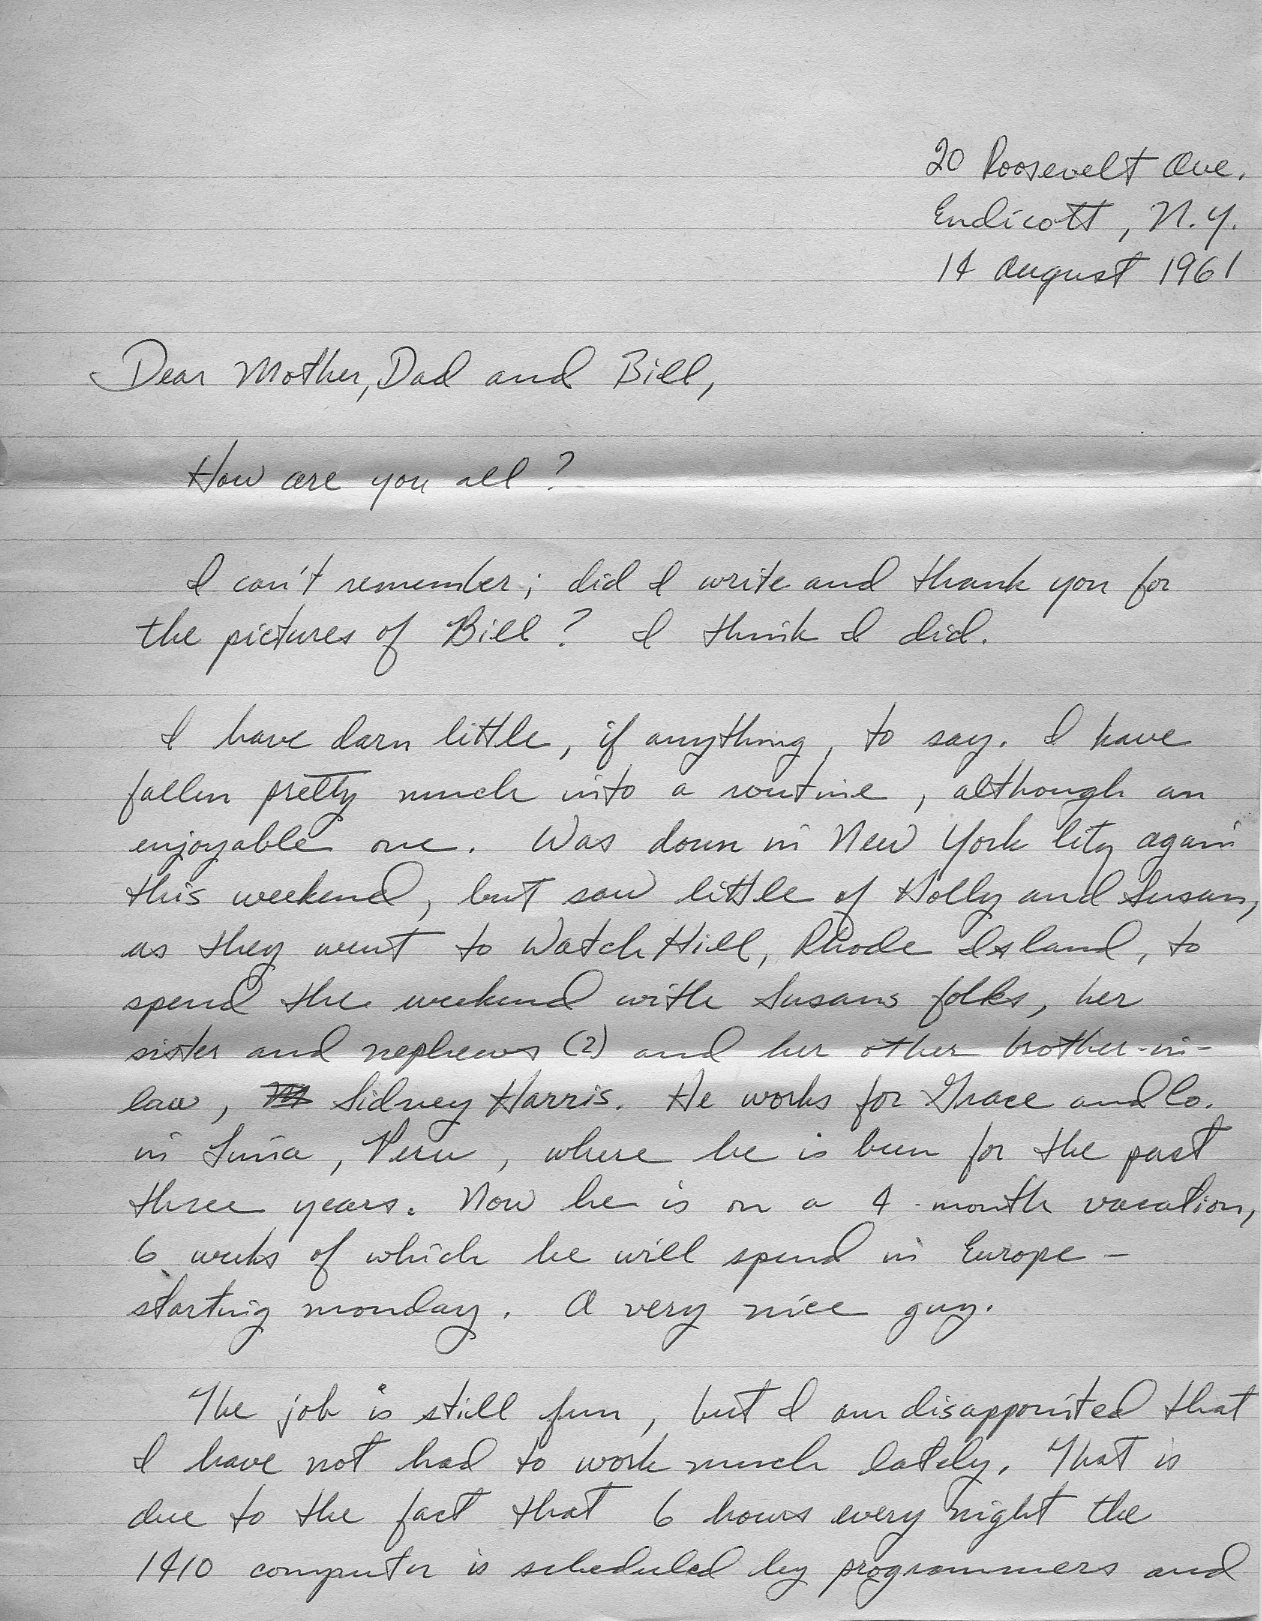 20 Roosevelt Ave.
Endicott, N.Y.
14 August 1961
Dear Mother, Dad and Bill,
How are you all?
I can't remember; did I write and thank you for
the pictures of Bill? I think I did.
I have darn little, if anything, to say. I have
fallen pretty much into a routine, although an
enjoyable one. Was down in New York City again
this weekend, but saw little of Holly and Susan,
as they went to Watch Hill, Rhode Island, to
spend the weekend with Susans folks, her
sister and nephews (2) and her other brother-in-
law, Sidney Harris. He works for Grace and Co.
in Lima, Peru, where he is been for the past
three years. Now he is on a 4 month vacation,
6 weeks of which he will spend in Europe -
starting monday. A very nice guy.
The job is still fun, but I am disappointed that
I have not had to work much lately. That is
due to the fact that 6 hours every night the
1410 computer is scheduled by programmers and